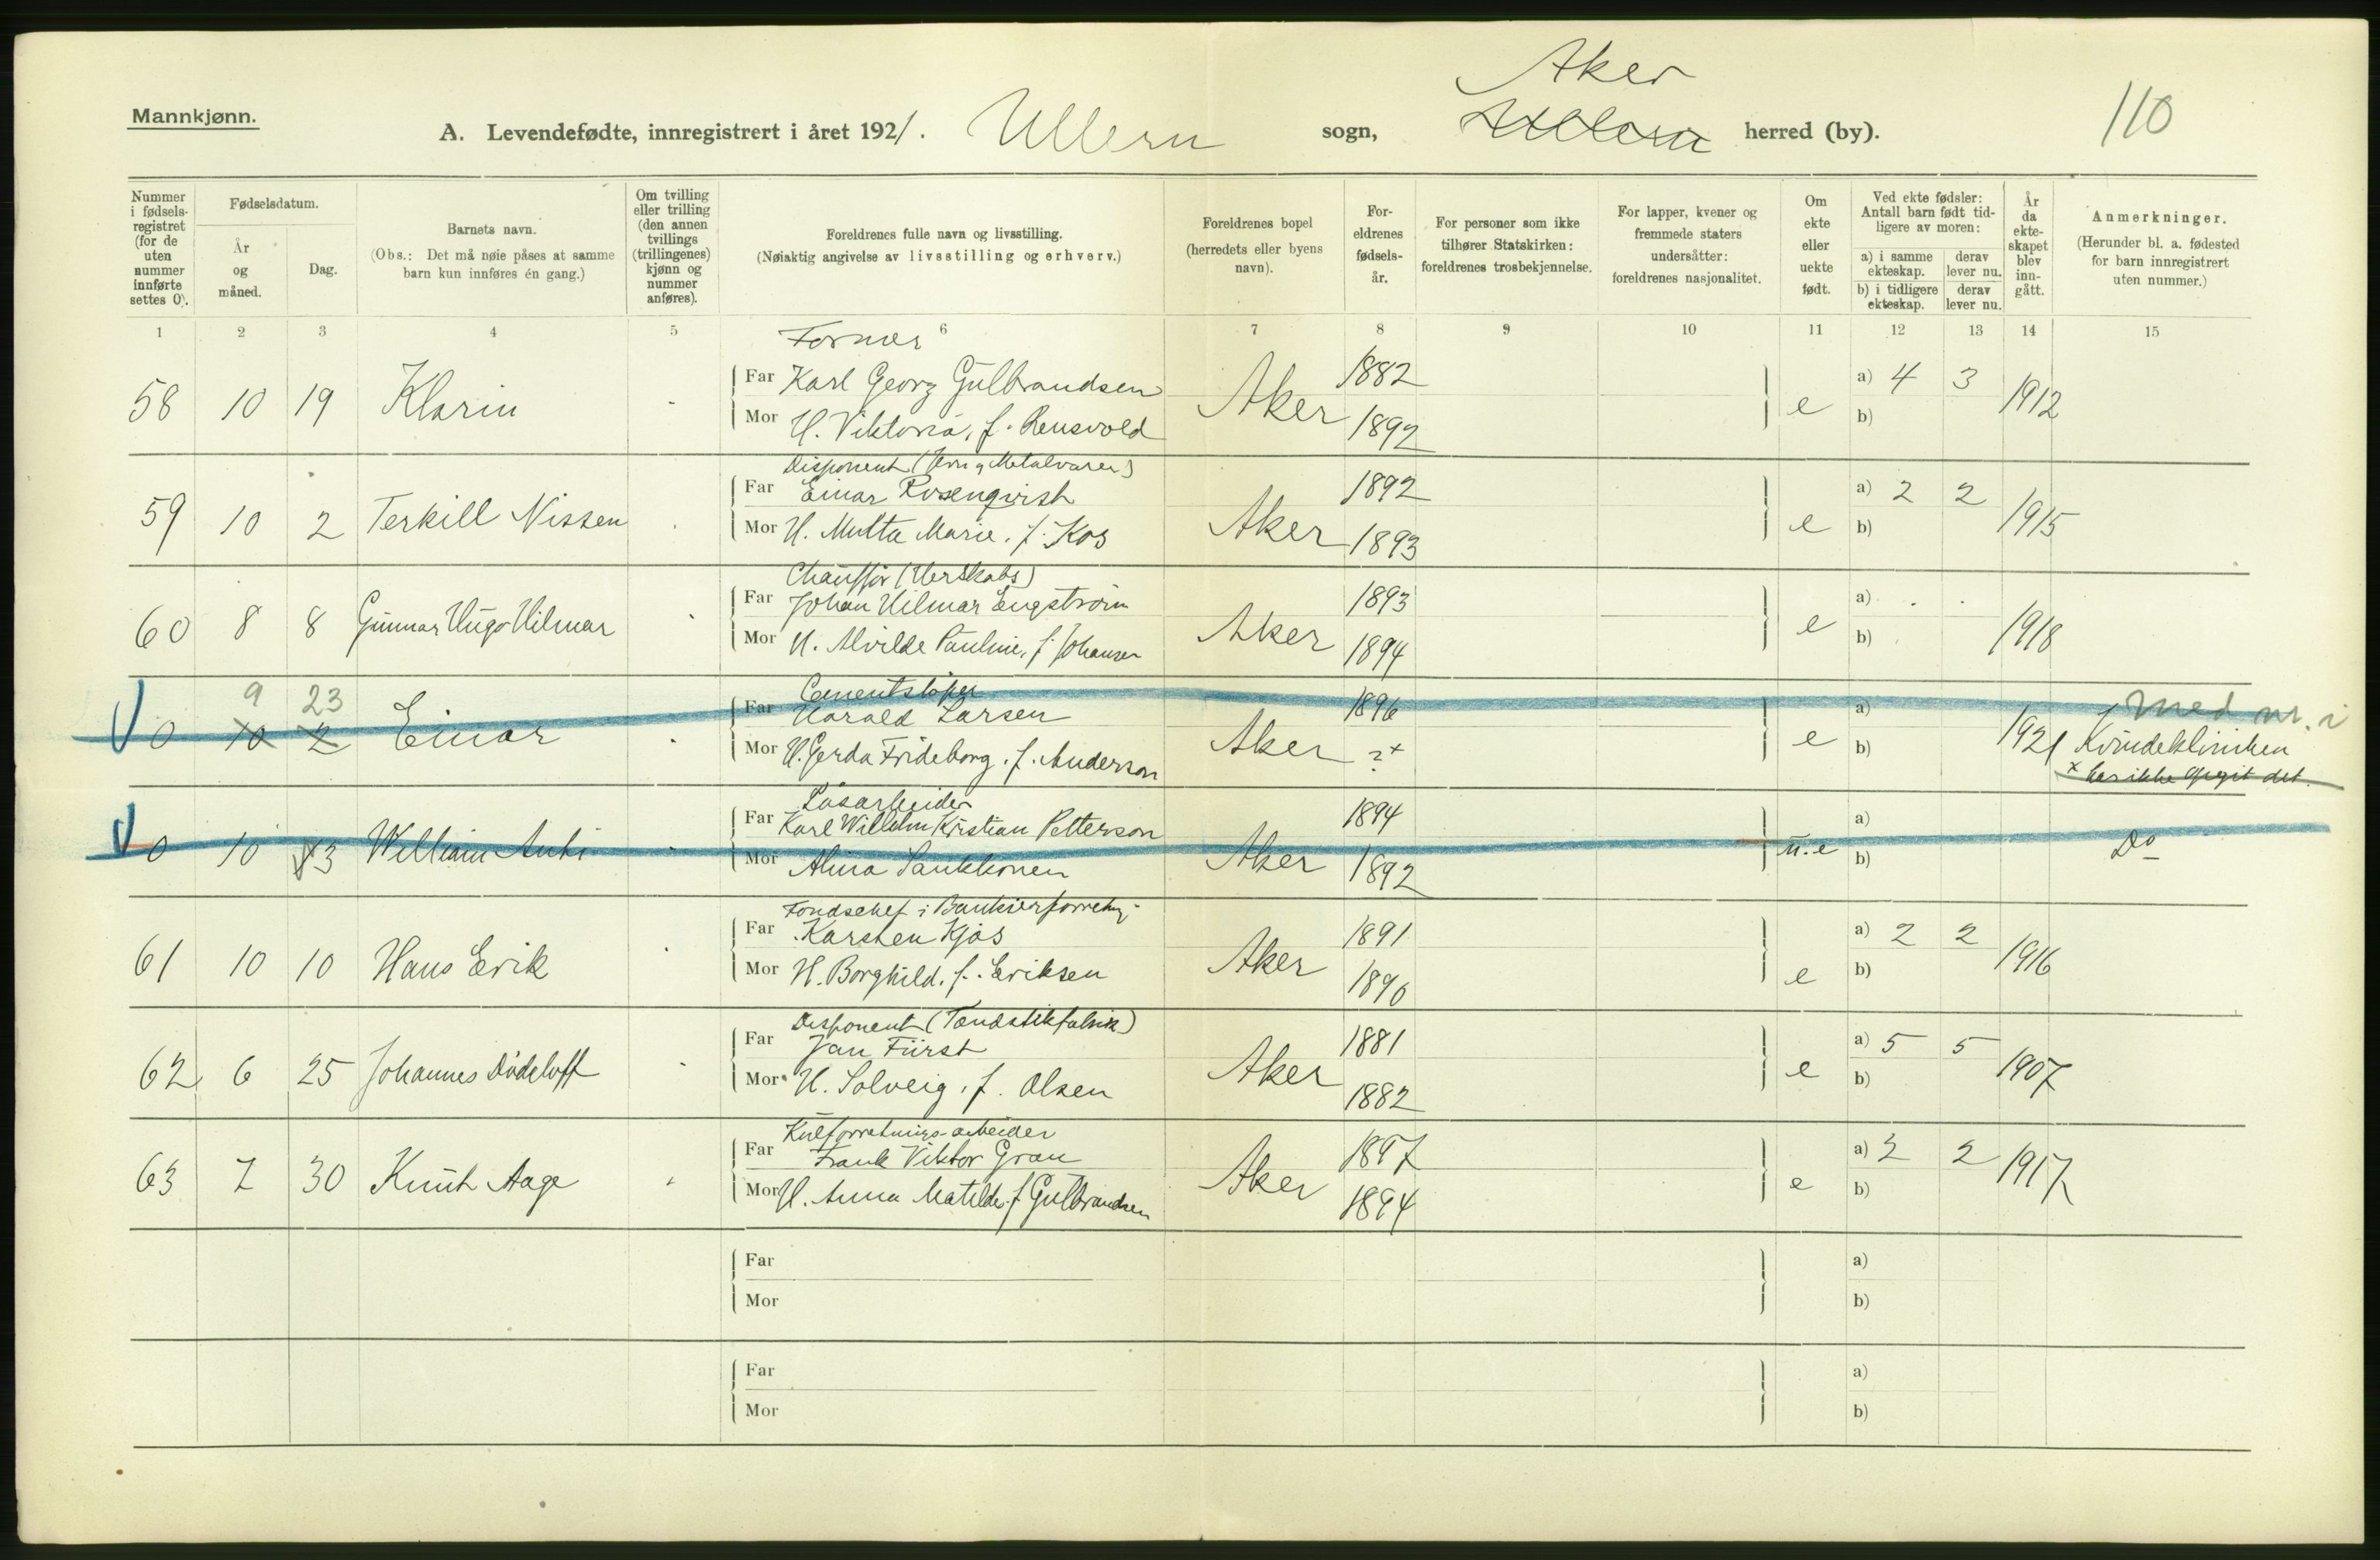 Aker
Mannkjønn.
A. Levendefødte, innregistrert i året 1921. Ullern sogn, Ullern herred (by).
110
Nummer i fødsels-registret (for de uten nummer innførte settes 0).
Fødselsdatum.
År og måned.
Dag.
Barnets navn.
(Obs.: Det må nøie påses at samme barn kun innføres én gang.)
Om tvilling eller trilling (den annen tvillings (trillingenes) kjønn og nummer anføres).
Foreldrenes fulle navn og livsstilling.
(Nøiaktig angivelse av livsstilling og erhverv.)
Foreldrenes bopel (herredets eller byens navn).
For-eldrenes fødsels-år.
For personer som ikke tilhører Statskirken: foreldrenes trosbekjennelse.
For lapper, kvener og fremmede staters undersåtter: foreldrenes nasjonalitet.
Om ekte eller uekte født.
Ved ekte fødsler: Antall barn født tid-ligere av moren:
a) i samme ekteskap. derav lever nu.
b) i tidligere ekteskap. derav lever nu.
År da ekte-skapet blev inn-gått.
Anmerkninger.
(Herunder bl. a. fødested for barn innregistrert uten nummer.)
1 2 3 4 5 6 7 8 9 10 11 12 13 14 15
Former
58 10 19 Klarin - Far Karl Georg Gulbrandsen Aker 1882 e a) 4 3 1912
Mor H. Viktoria, f. Rensvold 1892 b)
Disponent (Jern og Metalvarer)
59 10 2 Terkill Nissen Far Einar Rosenqvist Aker 1892 e a) 2 2 1915
Mor H. Mutta Marie, f. Kos 1893 b)
Chauffør (Herskabs)
60 8 8 Gunnar Hugo Hilmar Far Johan Hilmar Engstrøm Aker 1893 e a) . . 1918
Mor H. Alvilde Pauline, f. Johansen 1894 b)
9 23
Cementstøper
0 10 2 Einar Far Harald Larsen Aker 1896 e a) 1921 med nr. i
Mor H. Gerda Frideborg, f. Anderson ?x b) Kvindeklinikken
x har ikke opgit det.
Løsarbeider
0 10 13 William Anti - Far Karl Wilhelm Kristian Petterson Aker 1894 u.e a) Do
Mor Alina Laukkonen 1892 b)
Fondschef i Bankierforretn.
61 10 10 Hans Erik Far Karsten Kjøs Aker 1891 e a) 2 2 1916
Mor H. Borghild, f. Eriksen 1890 b)
Disponent (Tændstikfabrik)
62 6 25 Johannes Dideloff - Far Jan Fürst Aker 1881 e a) 5 5 1907
Mor H. Solveig, f. Olsen 1882 b)
Kulforretnings-arbeider
63 7 30 Knut Aage Far Frank Viktor Gran Aker 1897 e a) 2 2 1917
Mor H. Anna Matilde, f. Gulbrandsen 1894 b)
Far a)
Mor b)
Far a)
Mor b)